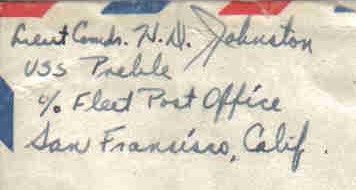 Lieut Comdr. H. D. Johnston
USS Preble
c/o Fleet Post Office
San Francisco, Calif.